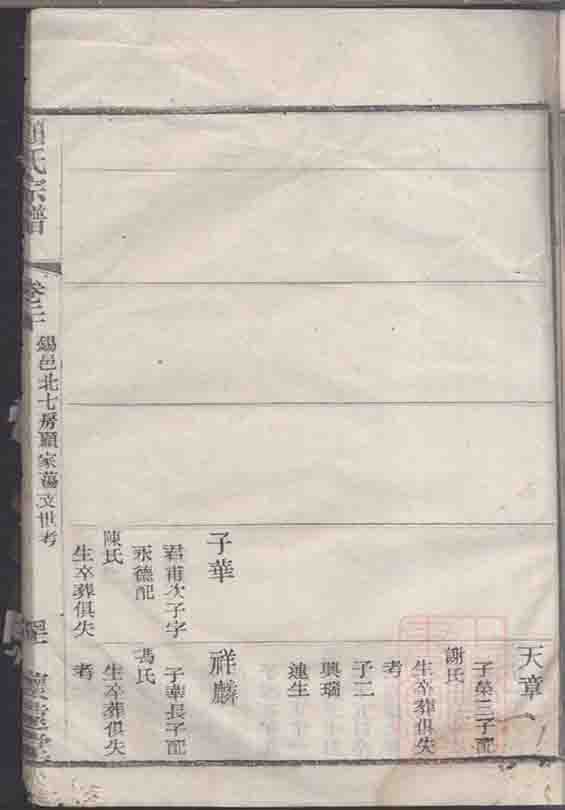 天章
子榮三子配
謝氏
生卒葬俱失
考
子二
興瑞
連生
子華
君甫次子字
永德配
陳氏
生卒葬俱失
考
祥麟
子華長子配
馮氏
生卒葬俱失
氏宗譜
卷二
錫邑北七房顧家蕩支世考